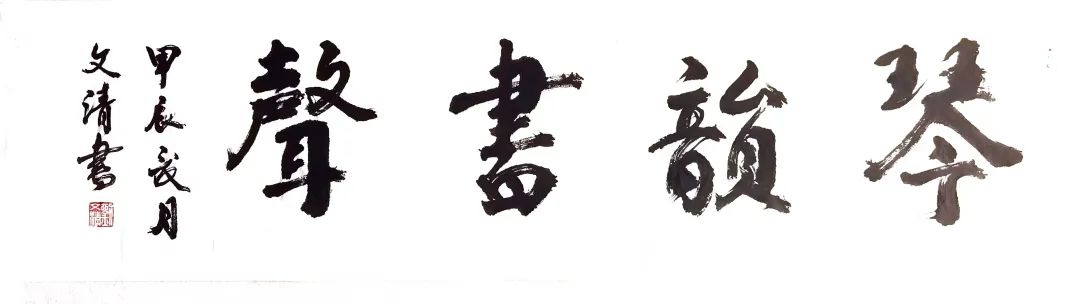 琴韻書聲
甲辰武月
文清書